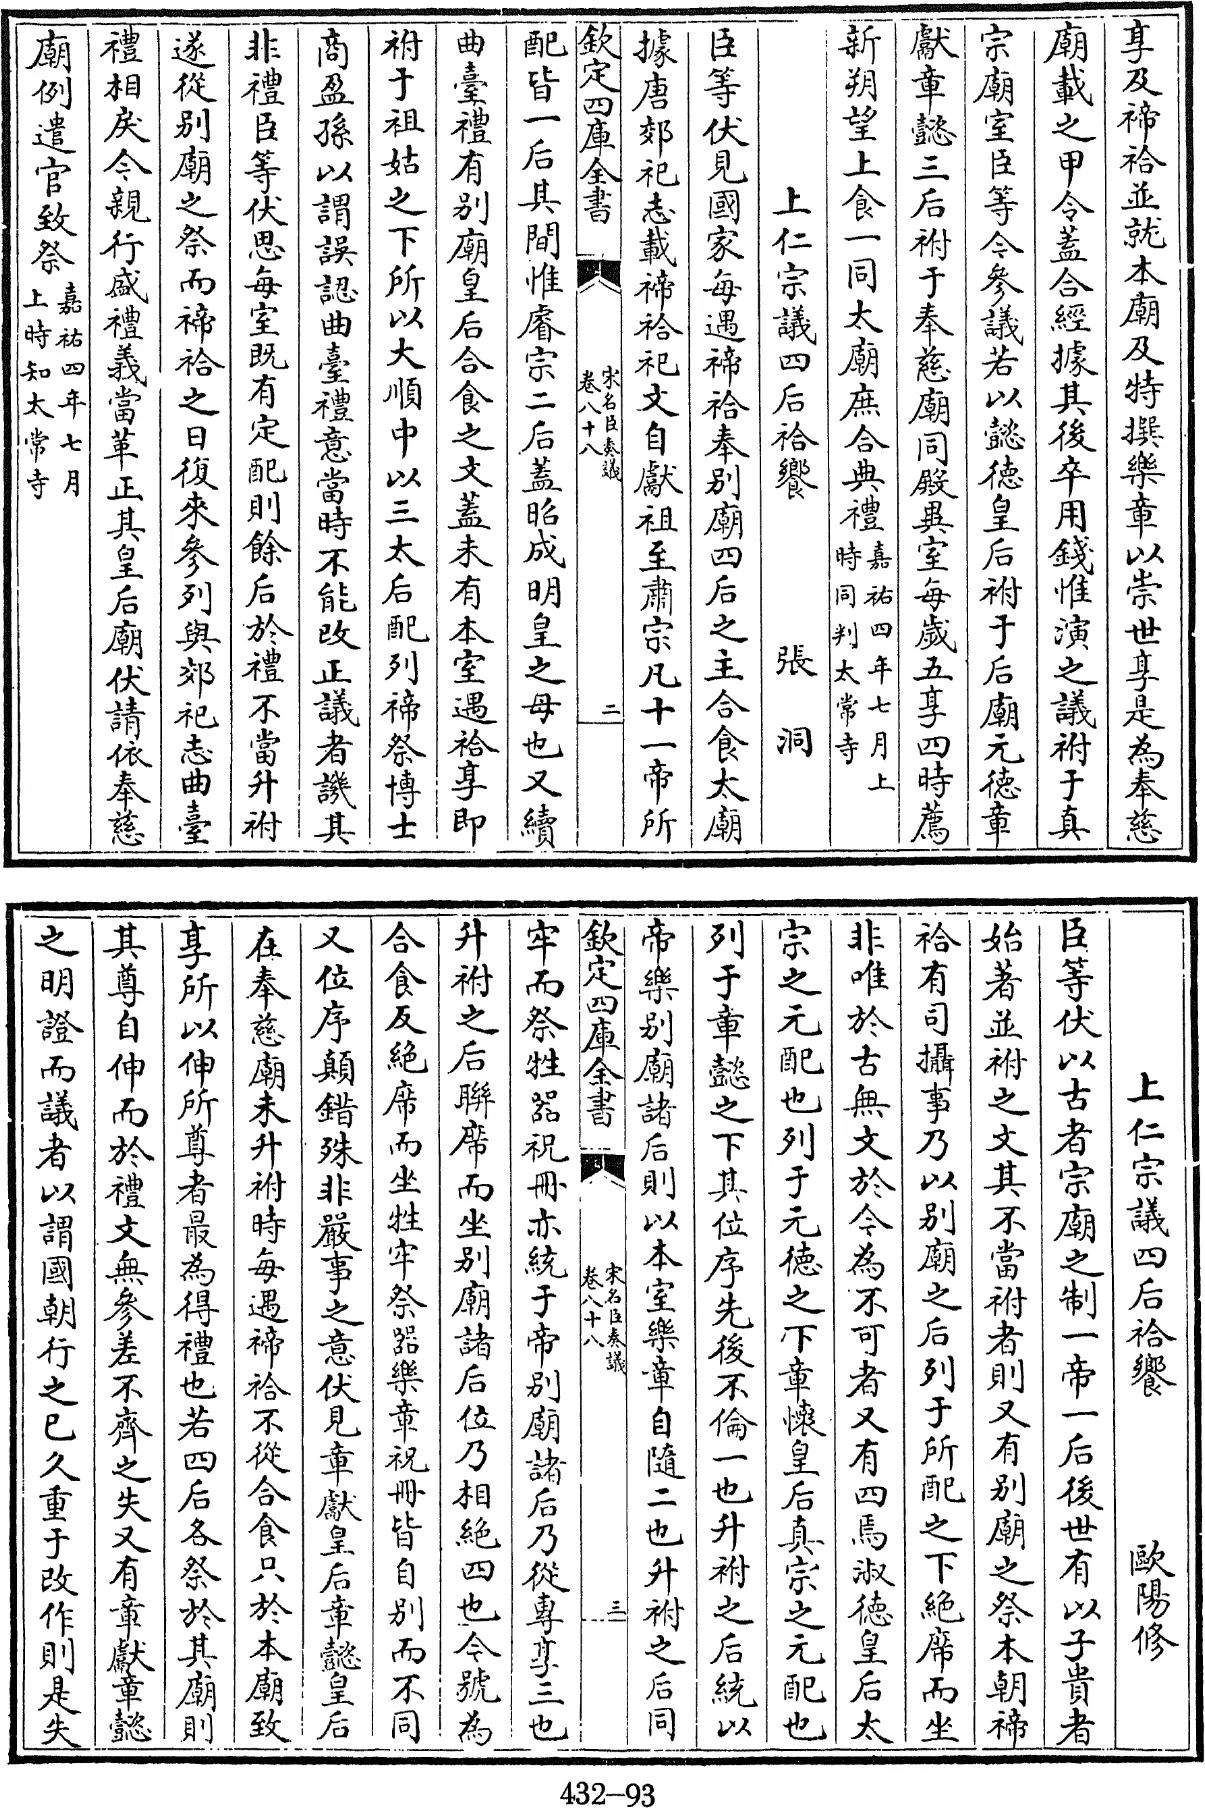 享及禘祫並就本廟及特撰樂章以崇世享是為奉慈
廟載之甲令蓋合經據其後卒用錢惟演之議祔于真
宗廟室臣等今參議若以懿德皇后祔于后廟元德章
獻章懿三后祔于奉慈廟同殿異室每歲五享四時薦
新朔望上食一同太廟庶合典禮嘉祐四年七月上
時同判太常寺
上仁宗議四后祫饗 張洞
臣等伏見國家每遇禘祫奉别廟四后之主合食太廟
據唐郊祀志載禘祫祀文自獻祖至肅宗凡十一帝所
欽定四庫全書 宋名臣奏議
卷八十八 二
配皆一后其間惟睿宗二后蓋昭成明皇之母也又續
曲臺禮有别廟皇后合食之文蓋未有本室遇祫享即
祔于祖姑之下所以大順中以三太后配列禘祭博士
商盈孫以謂誤認曲臺禮意當時不能改正議者譏其
非禮臣等伏思每室既有定配則餘后於禮不當升祔
遂從别廟之祭而禘祫之日復來參列與郊祀志曲臺
禮相戾今親行盛禮義當革正其皇后廟伏請依奉慈
廟例遣官致祭嘉祐四年七月
上時知太常寺
上仁宗議四后祫饗 歐陽修
臣等伏以古者宗廟之制一帝一后後世有以子貴者
始著並祔之文其不當祔者則又有别廟之祭本朝禘
祫有司攝事乃以别廟之后列于所配之下絶席而坐
非唯於古無文於今為不可者又有四焉淑德皇后太
宗之元配也列于元德之下章懷皇后真宗之元配也
列于章懿之下其位序先後不倫一也升祔之后統以
帝樂别廟諸后則以本室樂章自隨二也升祔之后同
欽定四庫全書 宋名臣奏議
卷八十八 三
牢而祭牲器祝冊亦統于帝别廟諸后乃從專享三也
升祔之后聯席而坐别廟諸后位乃相絶四也今號為
合食反絶席而坐牲牢祭器樂章祝冊皆自别而不同
又位序顛錯殊非嚴事之意伏見章獻皇后章懿皇后
在奉慈廟未升祔時每遇禘祫不從合食只於本廟致
享所以伸所尊者最為得禮也若四后各祭於其廟則
其尊自伸而於禮文無參差不齊之失又有章獻章懿
之明證而議者以謂國朝行之已久重于改作則是失
432-93